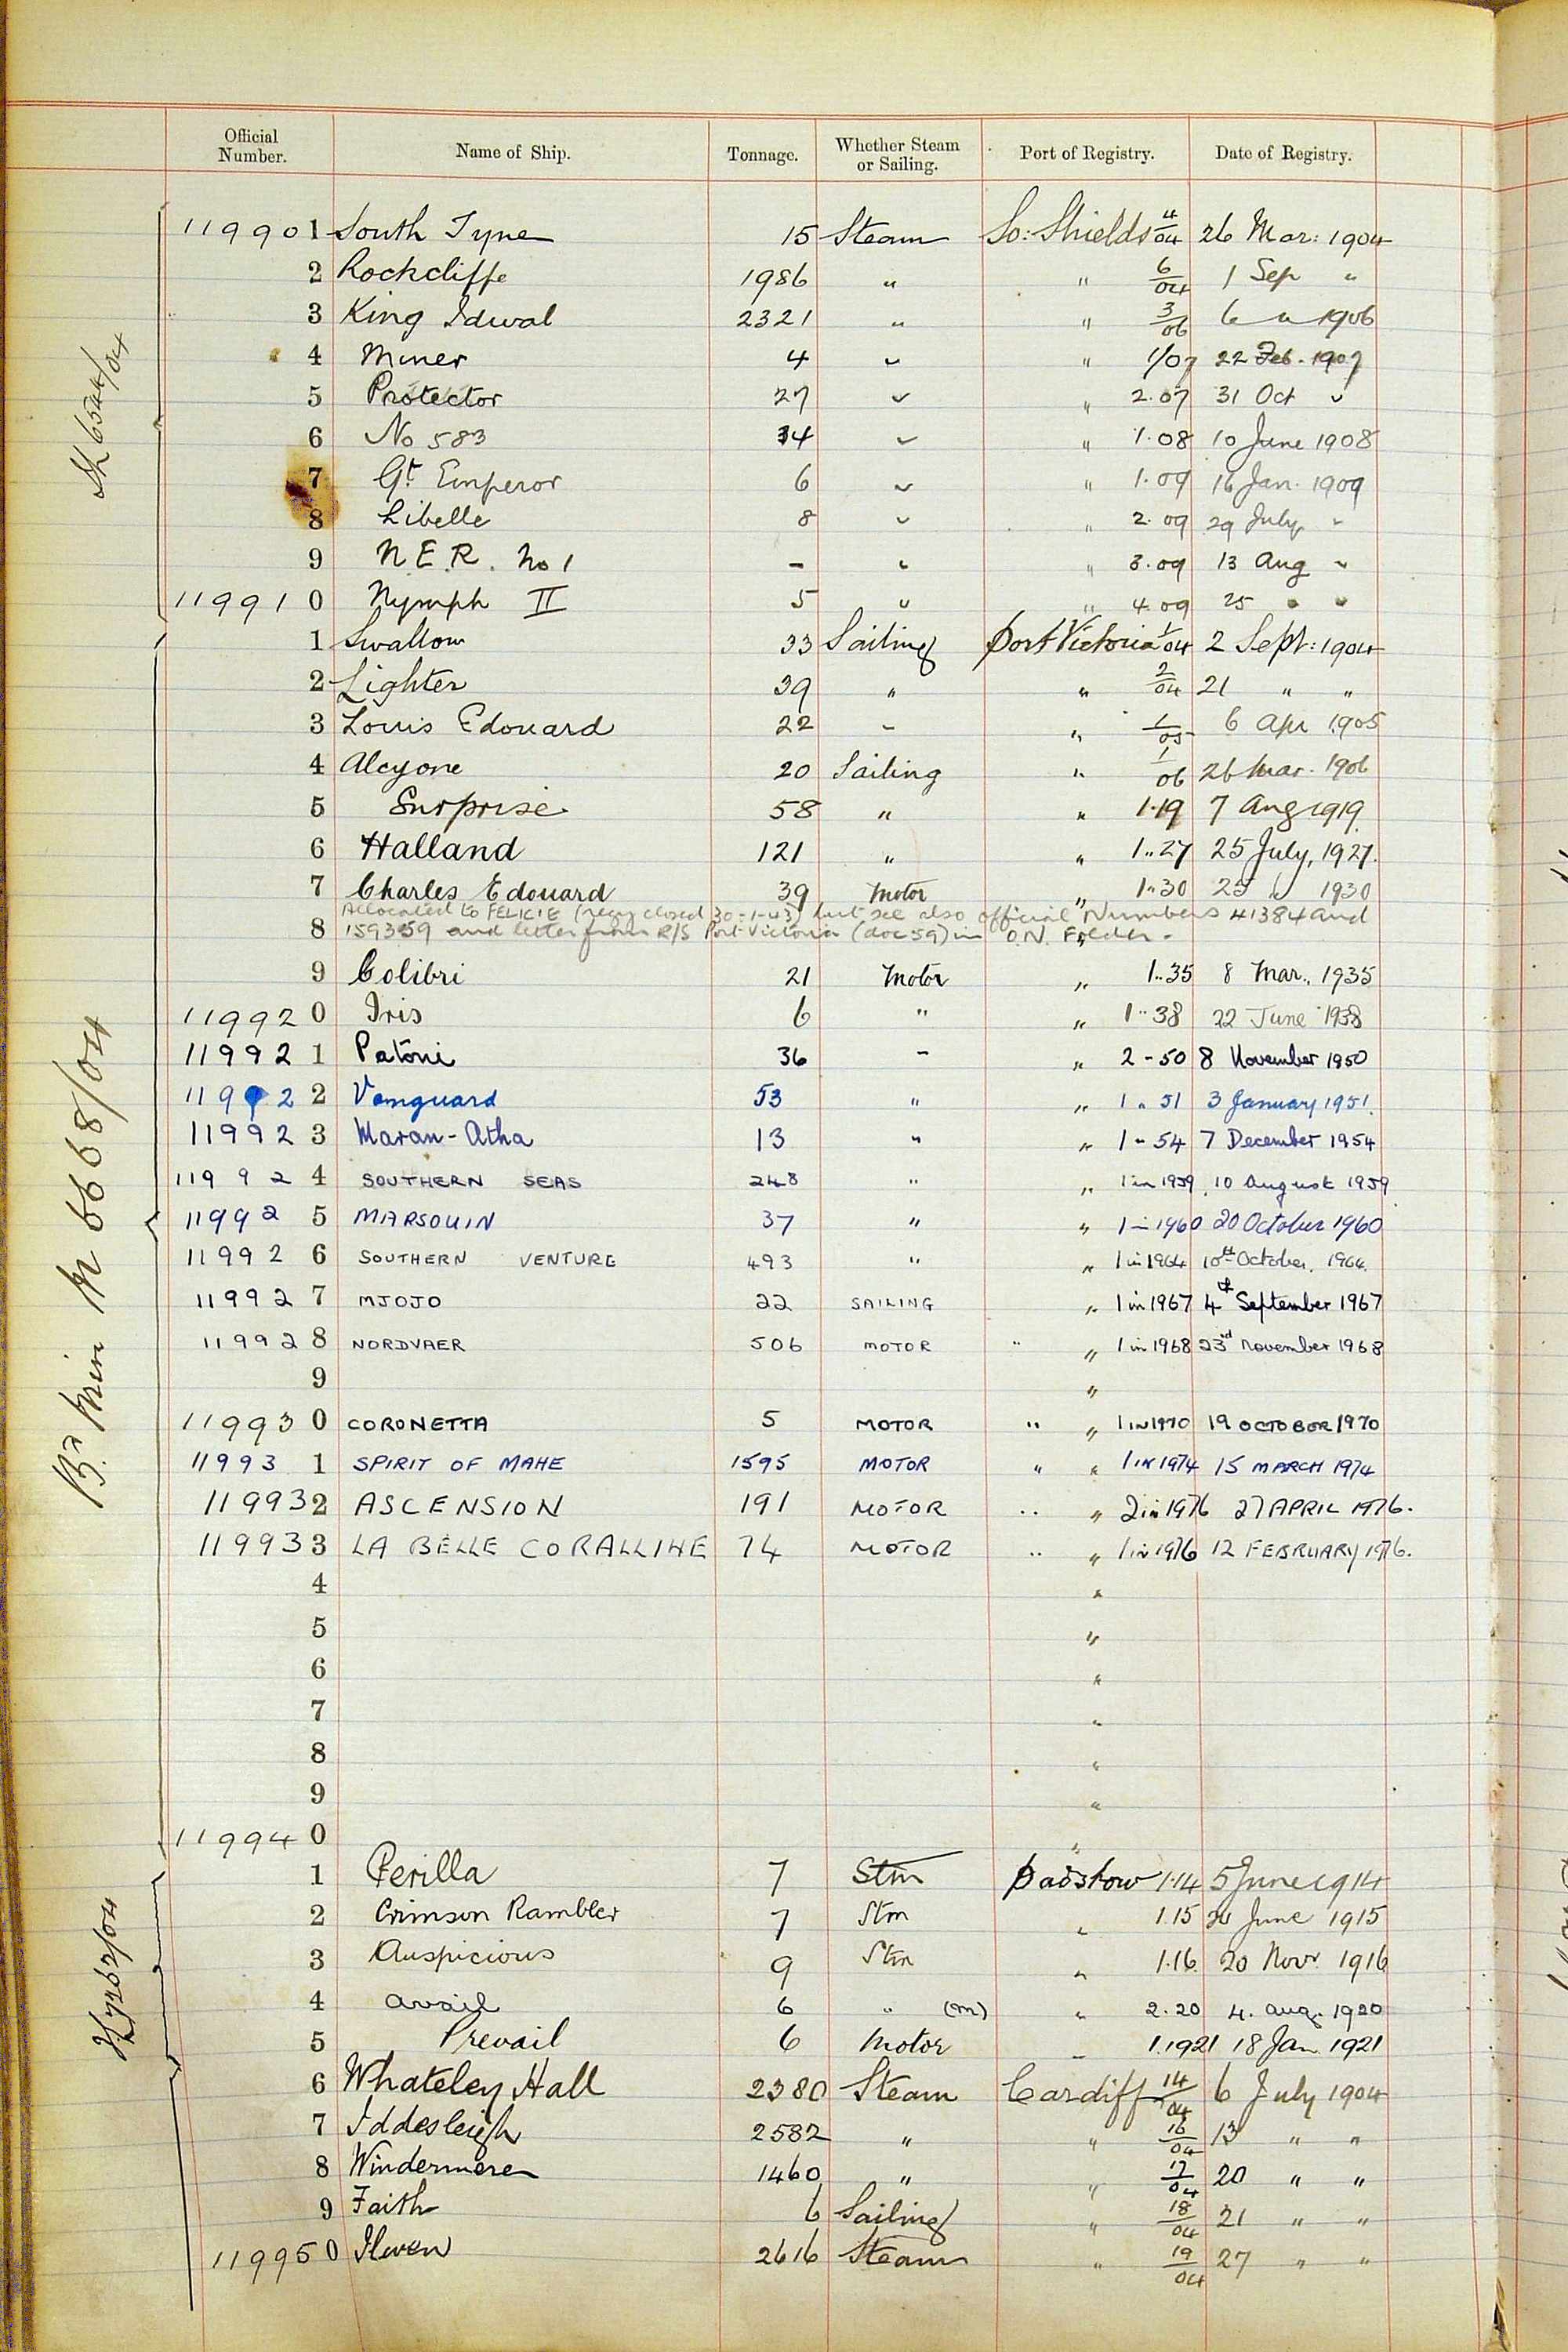 Official Number. Name of Ship. Tonnage. Whether Steam or Sailing. Port of Registry. Date of Registry.
119901 South Tyne 15 Steam So: Shields 4/04 26 Mar: 1904
2 Rockcliffe 1986 " " 6/04 1 Sep "
3 King Idwal 2321 " " 3/06 6 " 1906
4 Miner 4 " " 1/07 22 Feb. 1907
5 Protector 27 " " 2.07 31 Oct "
6 No 583 34 " " 1.08 10 June 1908
7 Gt Emperor 6 " " 1.09 16 Jan. 1909
8 Libelle 8 " " 2.09 29 July "
9 N.E.R. No 1 - " " 3.09 13 Aug "
119910 Nymph II 5 " " 4.09 25 " "
1 Swallow 33 Sailing Port Victoria 1/04 2 Sept: 1904
2 Lighter 39 " " 2/04 21 " "
3 Louis Edouard 22 " " 1/05 6 Apr 1905
4 Alcyone 20 Sailing " 1/06 26 Mar. 1906
5 Surprise 58 " " 1.19 7 Aug 1919
6 Halland 121 " " 1..27 25 July, 1927.
7 Charles Edouard 39 Motor " 1.30 25 " 1930
Allocated to FELICIE (regy closed 30-1-43) but see also official Numbers 41384 and
8 159359 and letter from R/S Port Victoria (doc 59) in O.N. Folder. "
9 Colibri 21 Motor " 1..35 8 Mar., 1935
119920 Iris 6 " " 1..38 22 June 1938
119921 Patoni 36 - " 2-50 8 November 1950
119922 Vanguard 53 " " 1.51 3 January 1951.
119923 Maran-Atha 13 " " 1-54 7 December 1954
119924 SOUTHERN SEAS 248 " " 1 in 1959 10 August 1959
119925 MARSOUIN 37 " " 1 in 1960 20 October 1960
119926 SOUTHERN VENTURE 493 " " 1 in 1964 10th October, 1964.
119927 MJOJO 22 SAILING " 1 in 1967 4th September 1967
119928 NORDVAER 506 MOTOR " " 1 in 1968 23rd November 1968
9 "
119930 CORONETTA 5 MOTOR " " 1 IN 1970 19 OCTOBER 1970
119931 SPIRIT OF MAHE 1595 MOTOR " " 1 IN 1974 15 MARCH 1974
119932 ASCENSION 191 MOTOR " " 2 in 1976 27 APRIL 1976.
119933 LA BELLE CORALLINE 74 MOTOR " " 1 in 1976 12 FEBRUARY 1976.
4 "
5 "
6 "
7 "
8 "
9 "
119940 "
1 Perilla 7 Stm Padstow 1.14 5 June 1914
2 Crimson Rambler 7 Stm " 1.15 June 1915
3 Auspicious 9 Stm " 1.16. 20 Novr 1916
4 Avail 6 " (m) " 2.20 4. Aug. 1920
5 Prevail 6 Motor " 1.1921 18 Jan. 1921
6 Whateley Hall 2380 Steam Cardiff 14/04 6 July 1904
7 Iddesleigh 2582 " " 16/04 13 " "
8 Windermere 1460 " " 17/04 20 " "
9 Faith 6 Sailing " 18/04 21 " "
119950 Ilwen 2616 Steam " 19/04 27 " "
6544/04
6668/04
7262/04